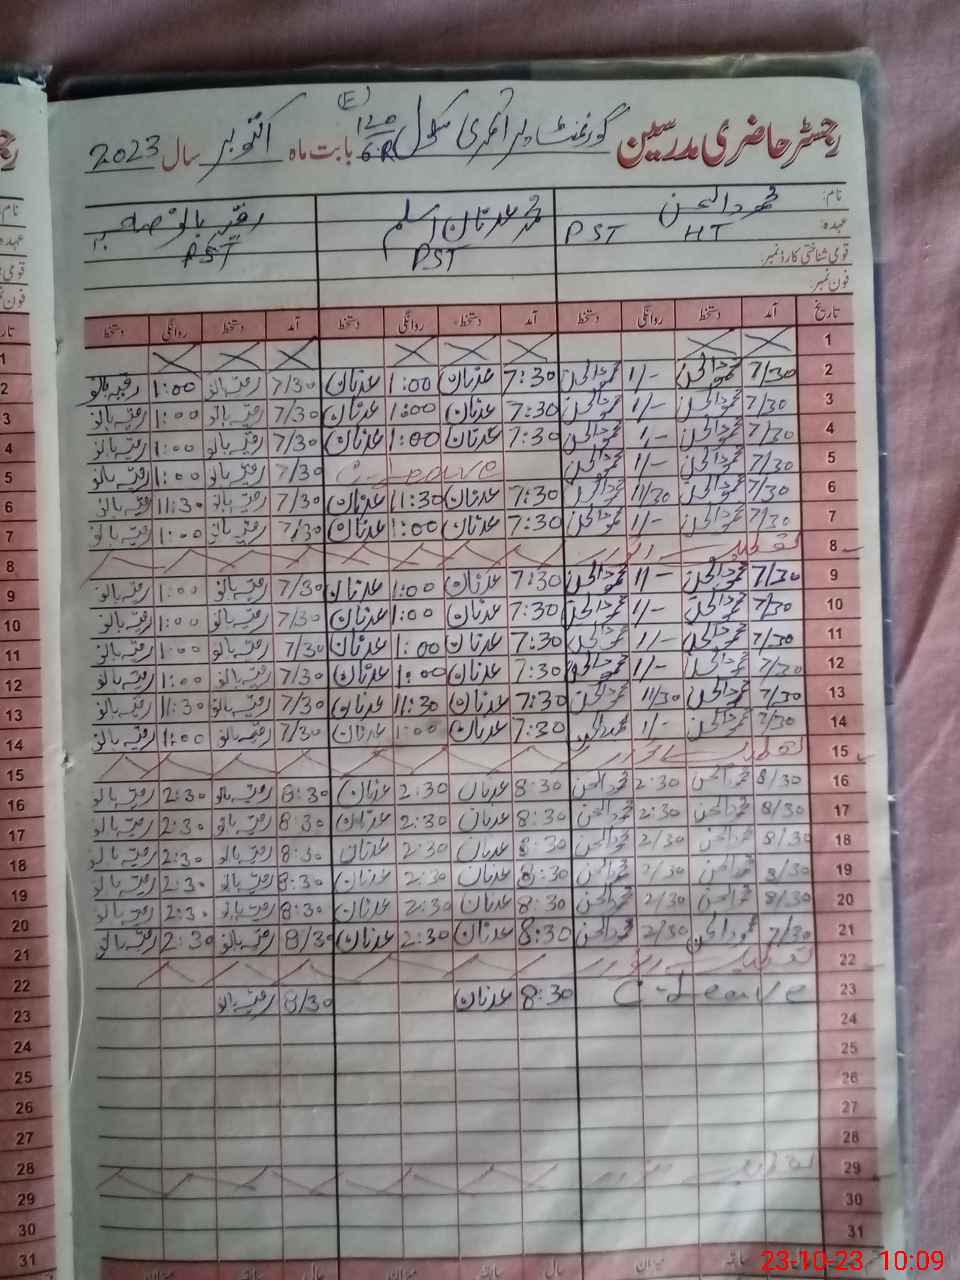 رجسٹر حاضری مدرسین گورنمنٹ پرائمری سکول 120/6.R (E) بابت ماہ اکتوبر سال 2023
نام: محمود الحسن محمد عدنان اسلم رقیہ بانو
عہدہ: HT PST PST PST
قومی شناختی کارڈ نمبر:
فون نمبر:
تاریخ آمد دستخط روانگی دستخط آمد دستخط روانگی دستخط آمد دستخط روانگی دستخط
1
2 7/30 محمود الحسن 1/- محمود الحسن 7:30 عدنان 1:00 عدنان 7/30 رقیہ بانو 1:00 رقیہ بانو
3 7/30 محمود الحسن 1/- محمود الحسن 7:30 عدنان 1:00 عدنان 7/30 رقیہ بانو 1:00 رقیہ بانو
4 7/30 محمود الحسن 1/- محمود الحسن 7:30 عدنان 1:00 عدنان 7/30 رقیہ بانو 1:00 رقیہ بانو
5 7/30 محمود الحسن 1/- محمود الحسن C-Leave 7/30 رقیہ بانو 1:00 رقیہ بانو
6 7/30 محمود الحسن 11/30 محمود الحسن 7:30 عدنان 11:30 عدنان 7/30 رقیہ بانو 11:30 رقیہ بانو
7 7/30 محمود الحسن 1/- محمود الحسن 7:30 عدنان 1:00 عدنان 7/30 رقیہ بانو 1:00 رقیہ بانو
8 تعطیل اتوار
9 7/30 محمود الحسن 1/- محمود الحسن 7:30 عدنان 1:00 عدنان 7/30 رقیہ بانو 1:00 رقیہ بانو
10 7/30 محمود الحسن 1/- محمود الحسن 7:30 عدنان 1:00 عدنان 7/30 رقیہ بانو 1:00 رقیہ بانو
11 7/30 محمود الحسن 1/- محمود الحسن 7:30 عدنان 1:00 عدنان 7/30 رقیہ بانو 1:00 رقیہ بانو
12 7/30 محمود الحسن 1/- محمود الحسن 7:30 عدنان 1:00 عدنان 7/30 رقیہ بانو 1:00 رقیہ بانو
13 7/30 محمود الحسن 11/30 محمود الحسن 7:30 عدنان 11:30 عدنان 7/30 رقیہ بانو 11:30 رقیہ بانو
14 7/30 محمود الحسن 1/- محمود الحسن 7:30 عدنان 1:00 عدنان 7/30 رقیہ بانو 1:00 رقیہ بانو
15 تعطیل اتوار
16 8/30 محمود الحسن 2:30 محمود الحسن 8:30 عدنان 2:30 عدنان 8:30 رقیہ بانو 2:30 رقیہ بانو
17 8/30 محمود الحسن 2:30 محمود الحسن 8:30 عدنان 2:30 عدنان 8:30 رقیہ بانو 2:30 رقیہ بانو
18 8/30 محمود الحسن 2/30 محمود الحسن 8:30 عدنان 2:30 عدنان 8:30 رقیہ بانو 2:30 رقیہ بانو
19 8/30 محمود الحسن 2/30 محمود الحسن 8:30 عدنان 2:30 عدنان 8:30 رقیہ بانو 2:30 رقیہ بانو
20 8/30 محمود الحسن 2/30 محمود الحسن 8:30 عدنان 2:30 عدنان 8:30 رقیہ بانو 2:30 رقیہ بانو
21 7/30 محمود الحسن 2/30 محمود الحسن 8:30 عدنان 2:30 عدنان 8/30 رقیہ بانو 2:30 رقیہ بانو
22 تعطیل اتوار
23 C-Leave 8:30 عدنان 8/30 رقیہ بانو
24
25
26
27
28
29 تعطیل اتوار
30
31
23-10-23 10:09